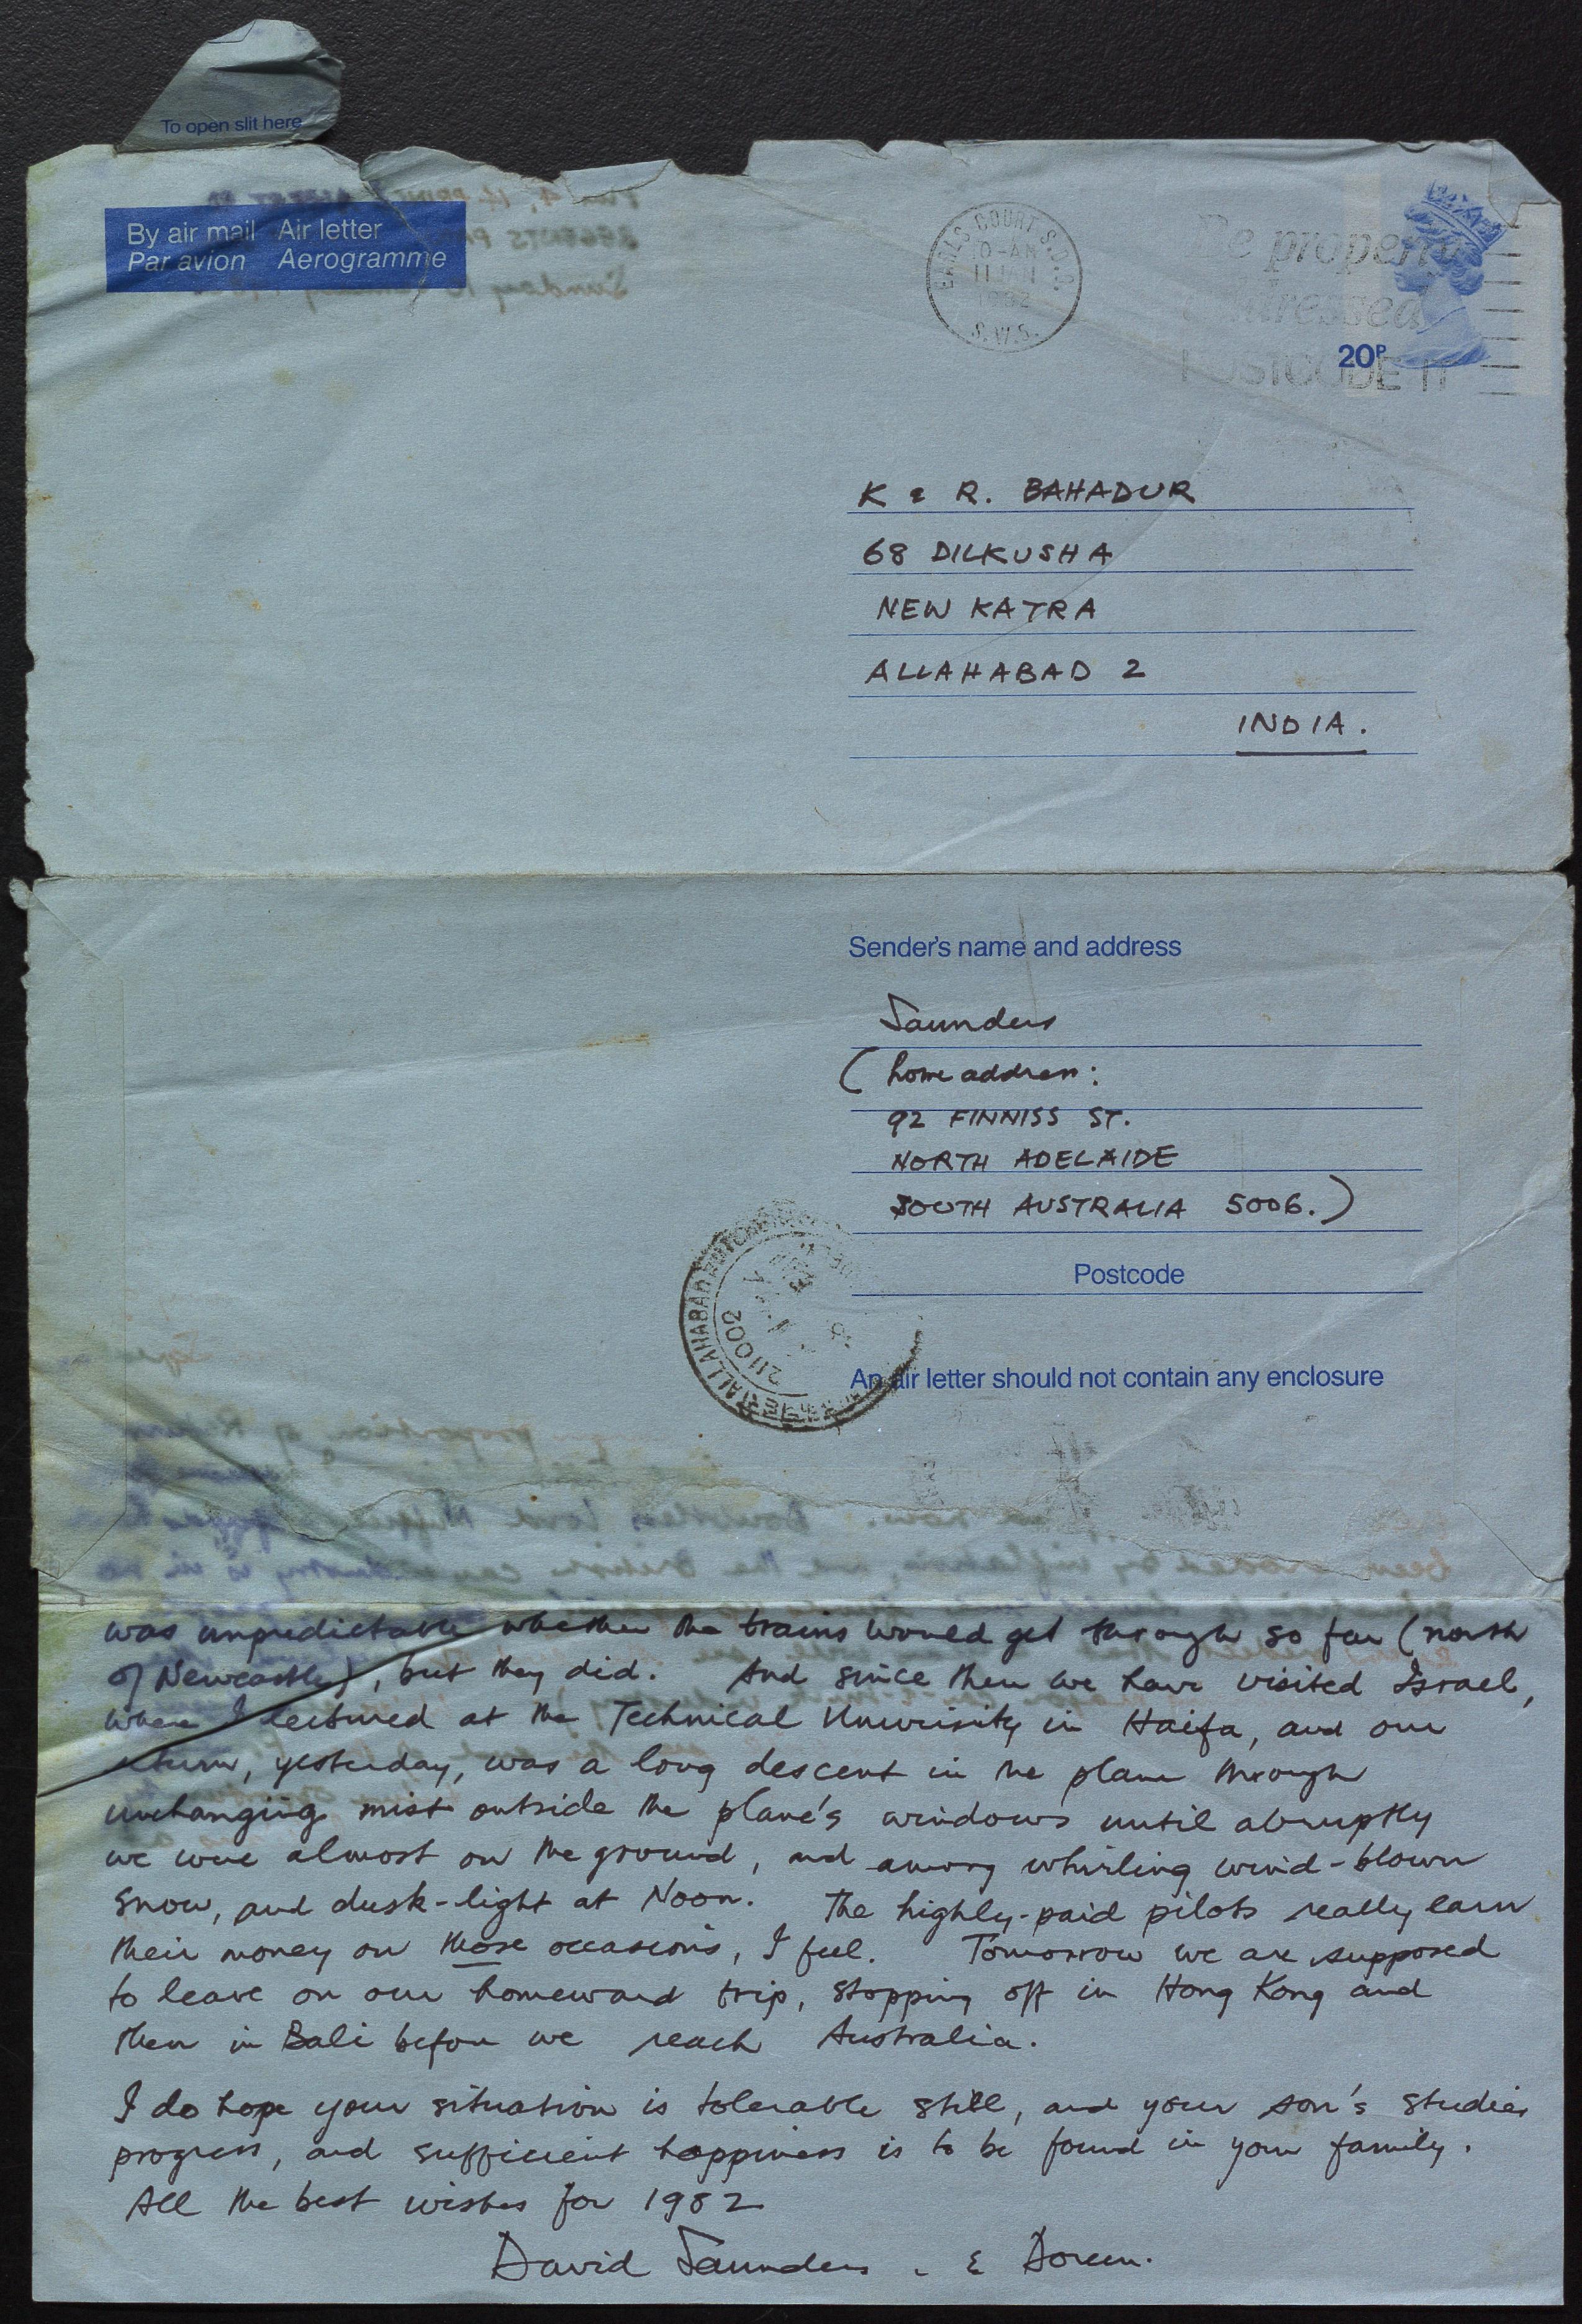 To open slit here
By air mail Air letter
Par avion Aerogramme
EARLS COURT S.D.O.
10-AM
11 JAN
1982
S.W.5.
Be properly
addressed
POSTCODE IT
20P
K & R. BAHADUR
68 DILKUSHA
NEW KATRA
ALLAHABAD 2
INDIA.
Sender's name and address
Saunders
(home address:
92 FINNISS ST.
NORTH ADELAIDE
SOUTH AUSTRALIA 5006.)
Postcode
ALLAHABAD
211002
An air letter should not contain any enclosure
was unpredictable whether the trains would get through so far (north
of Newcastle), but they did. And since then we have visited Israel,
where I lectured at the Technical University in Haifa, and our
return, yesterday, was a long descent in the plane through
unchanging mist outside the plane's windows until abruptly
we were almost on the ground, and among whirling wind-blown
snow, and dusk-light at Noon. The highly-paid pilots really earn
their money on those occasions, I feel. Tomorrow we are supposed
to leave on our homeward trip, stopping off in Hong Kong and
then in Bali before we reach Australia.
I do hope your situation is tolerable still, and your son's studies
progress, and sufficient happiness is to be found in your family.
All the best wishes for 1982
David Saunders. & Doreen.